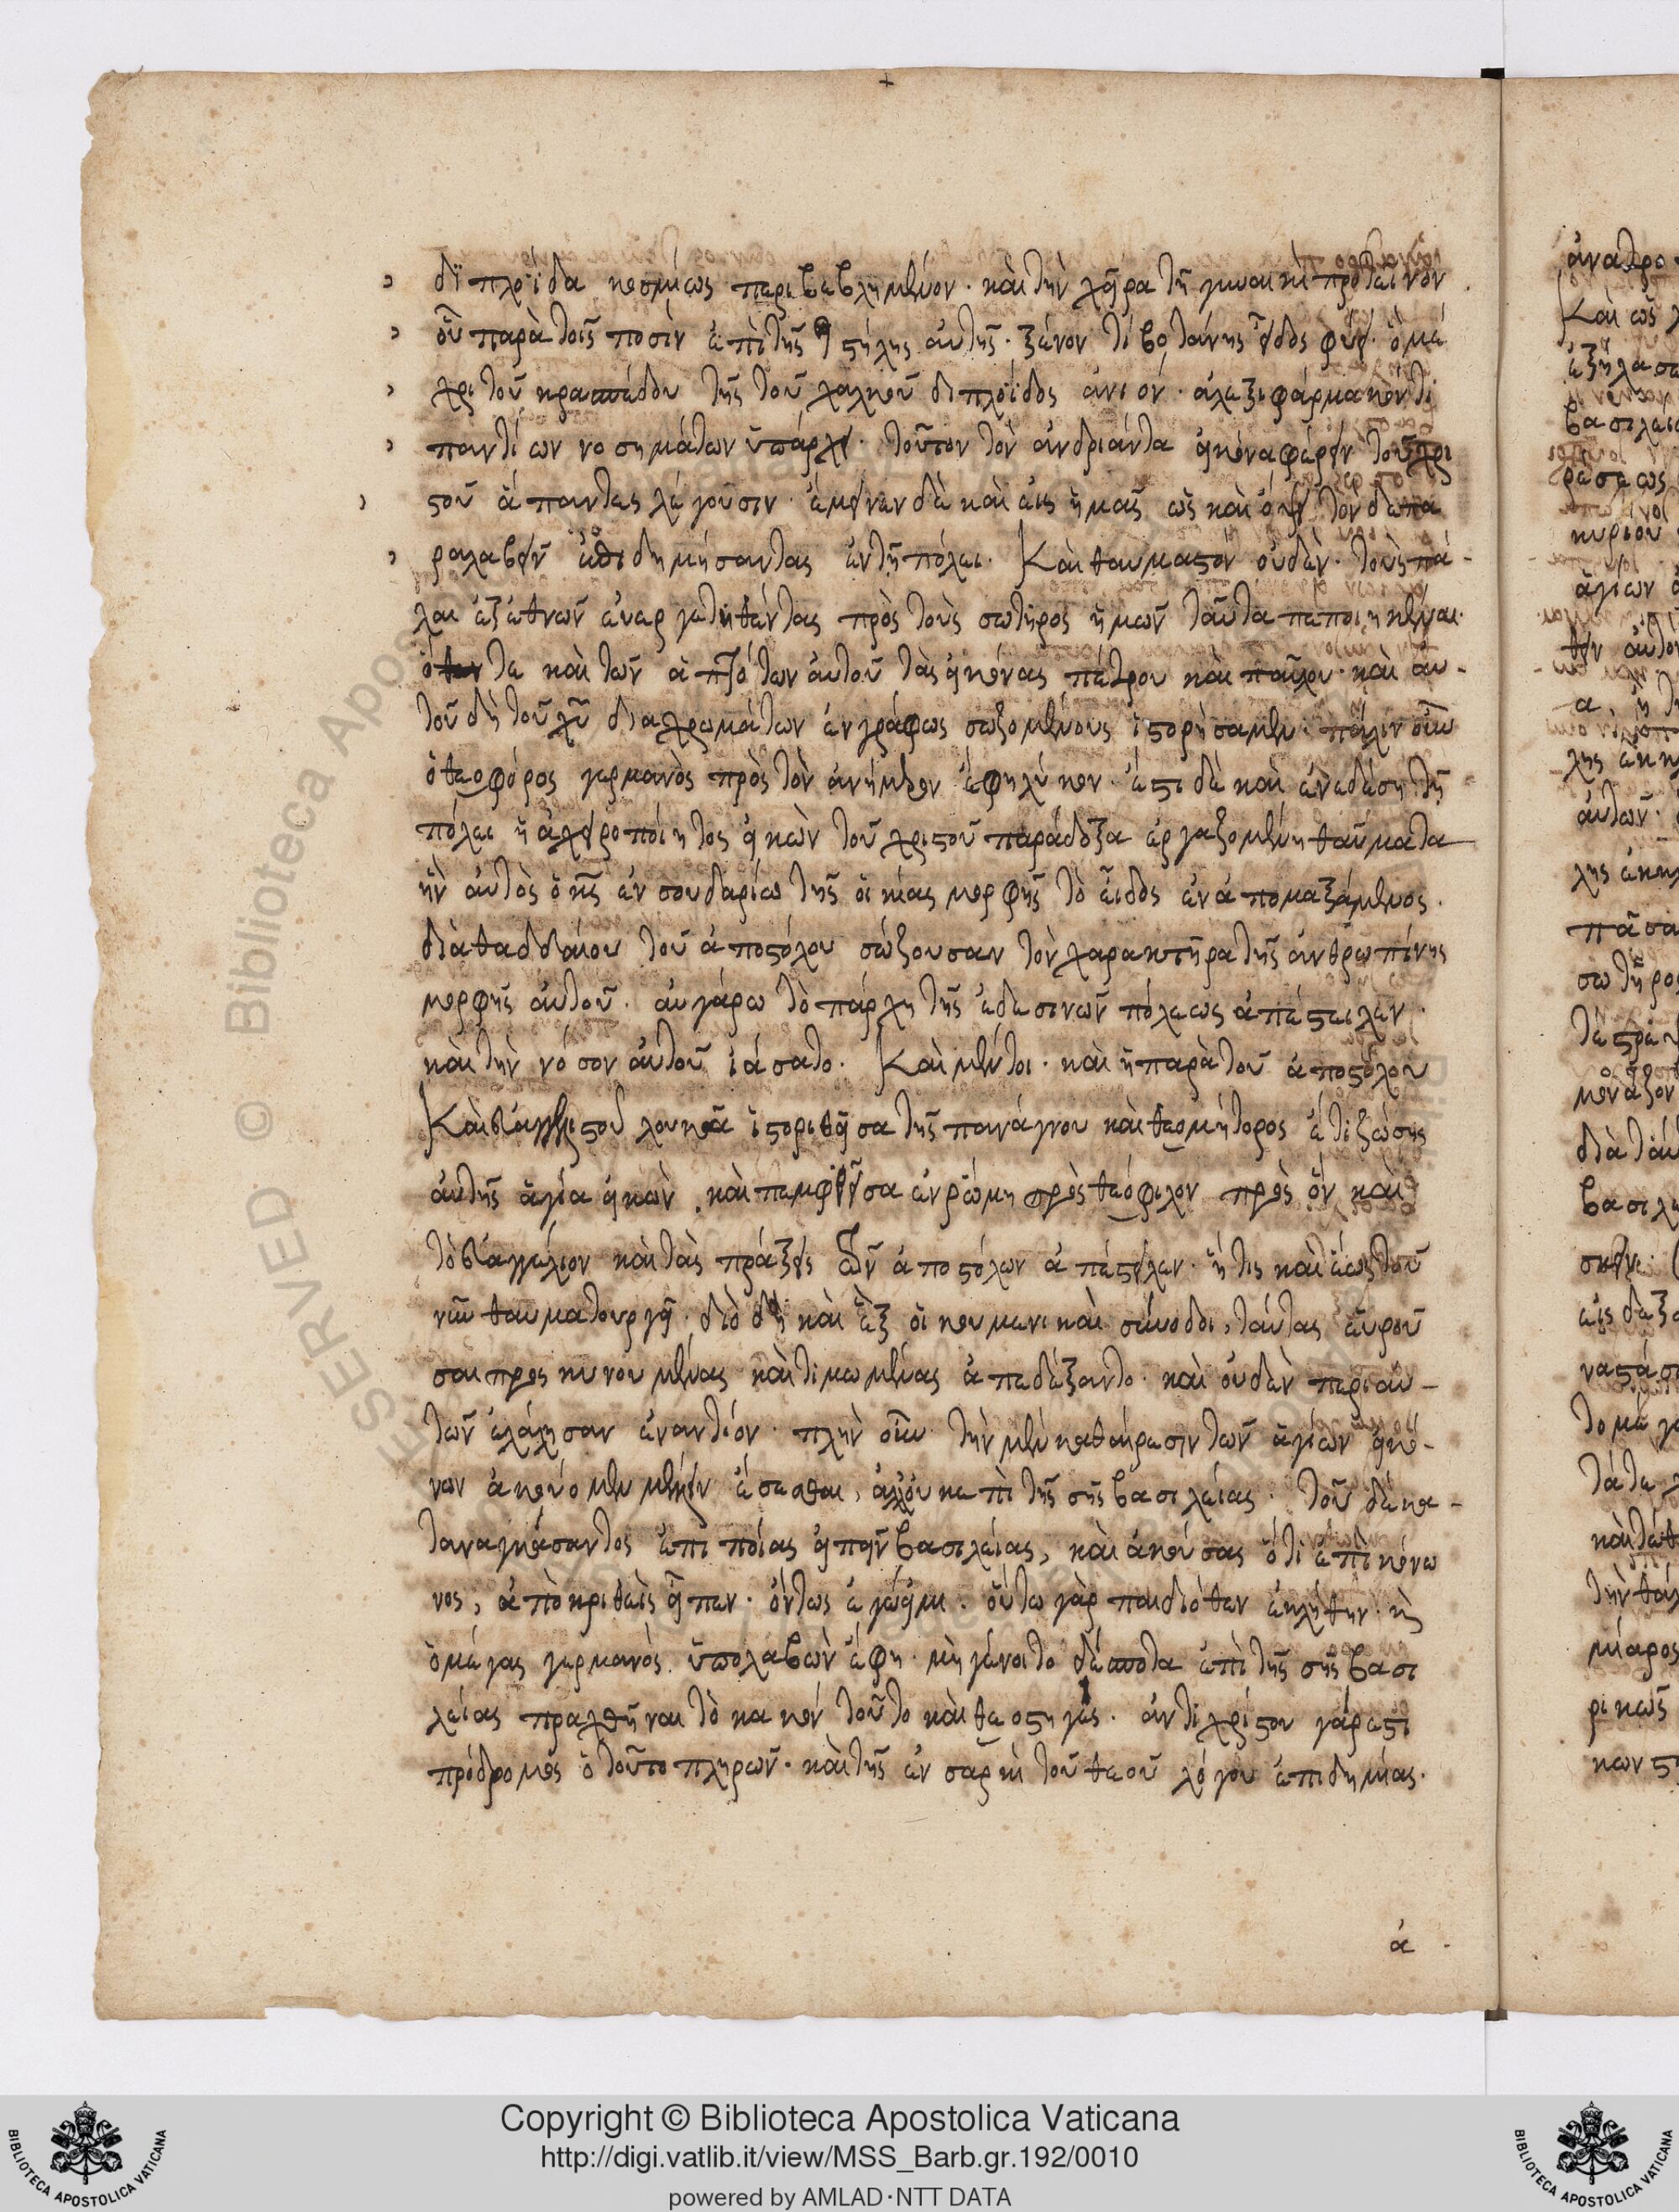 διπλοΐδα κοσμίως περιβεβλημένον· καὶ τὴν χεῖρα τῇ γυναικὶ προτείνον
οὗ παρὰ τοῖς ποσὶν ἐπὶ τῆς στήλης αὐτῆς· ξένον τὶ βοτάνης εἶδος φύει· ὃ μέ
χρι τοῦ κρασπέδου τῆς τοῦ χαλκοῦ διπλοΐδος ἀνιὸν· ἀλεξιφάρμακόν τι
παντίων νοσημάτων ὑπάρχει· τοῦτον τὸν ἀνδριάντα εἰκόνα φέρειν τοῦ χρι
στοῦ ἅπαντες λέγουσιν· ἔμεινεν δὲ καὶ εἰς ἡμᾶς ὡς καὶ ὄψει τὸν δὲ πα
ραλαβεῖν ἐπιδημήσαντας ἐν τῇ πόλει. Καὶ θαυμαστὸν οὐδὲν· τοὺς πά-
λαι ἐξ ἐθνῶν εὐεργετηθέντας πρὸς τοὺς σωτῆρος ἡμῶν ταῦτα πεποιηκέναι·
τε καὶ τῶν ἀποστόλων αὐτοῦ τὰς εἰκόνας πέτρου καὶ παύλου· καὶ αὐ-
τοῦ δὴ τοῦ χῦ διαχρωμάτων ἐν γράφως σωζομένους ἱστορήσαμεν· πάλιν οὖν
ὁ θεοφόρος γερμανὸς πρὸς τὸν ἀνήμερον ἔφη λύκον· ἔστι δὲ καὶ ἐν ἐδέση τῇ
πόλει ἡ ἀχειροποίητος εἰκὼν τοῦ χριστοῦ παράδοξα ἐργαζομένη θαύματα
ἣν αὐτὸς ὁ κς ἐν σουδαρίω τῆς οἰκίας μορφῆς τὸ εἶδος ἐναπομαξάμενος.
διὰ θαδδαίου τοῦ ἀποστόλου σώζουσαν τὸν χαρακτῆρα τῆς ἀνθρωπίνης
μορφῆς αὐτοῦ. αὐγάρω τὸ πάρχη τῆς ἐδεσινῶν πόλεως ἀπέστειλεν.
καὶ τὴν νόσον αὐτοῦ ἰάσατο. Καὶ μέντοι· καὶ ἡ παρὰ τοῦ ἀποστόλου
Καὶ εὐαγγελιστοῦ λουκᾶ ἱστοριθεῖσα τῆς πανάγνου καὶ θεομήτορος ἔτι ζώσης
αὐτῆς ἁγία εἰκὼν, καὶ πεμφθεῖσα ἐν ῥώμη πρὸς θεόφιλον πρὸς ὃν καὶ
τὸ εὐαγγέλιον καὶ τὰς πράξεις τῶν ἀποστόλων ἀπέστειλεν· ἥτις καὶ ἕως τοῦ
νῦν θαυματουργεῖ· διὸ δὴ καὶ ἓξ οἰκουμενικαὶ σύνοδοι, ταύτας εὑροῦ
σαι προσκυνουμένας καὶ τιμωμένας ἀπεδέξαντο· καὶ οὐδὲν περὶ αὐ-
τῶν ἐλάλησαν ἐναντίον· πλὴν οὖν τὴν μὲν καθαίρεσιν τῶν ἁγίων εἰκό-
νων ἀκούομεν μέλλειν ἔσεσθαι, ἀλλ' οὐκ ἐπὶ τῆς σῆς βασιλείας. τοῦ δὲ κα-
ταναγκάσαντος ἐπὶ ποίας εἰπεῖν βασιλείας, καὶ ἀκούσας ὅτι ἐπὶ κόνω
νος, ἀποκριθεὶς εἶπεν· ὄντως ἐγώ εἰμι· οὕτω γὰρ παιδιόθεν ἐκλήθην· κ
ὁ μέγας γερμανὸς ὑπολαβὼν ἔφη· μὴ γένοιτο δέσποτα ἐπὶ τῆς σῆς βασι
λείας πραχθῆναι τὸ κακὸν τοῦτο καὶ θεοστηγές· ἀντιχρίστου γάρ ἐστι
πρόδρομος ὁ τοῦτο πληρῶν· καὶ τῆς ἐν σαρκὶ τοῦ θεοῦ λόγου ἐπιδημίας.
ἀ
Copyright © Biblioteca Apostolica Vaticana
http://digi.vatlib.it/view/MSS_Barb.gr.192/0010
powered by AMLAD·NTT DATA
BIBLIOTECA APOSTOLICA VATICANA
BIBLIOTECA APOSTOLICA VATICANA